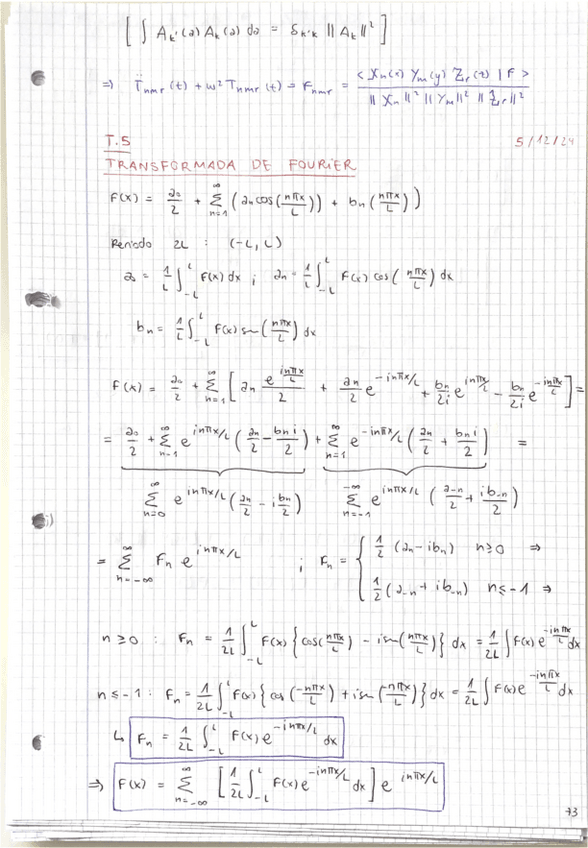 [ ∫ A_k'(a) A_k(a) da = δ_k'k ||A_k||² ]
⇒ T̈_nmr(t) + ω² T_nmr(t) = F_nmr = <X_n(x) Y_m(y) Z_r(z) | F> / ||X_n||² ||Y_m||² ||Z_r||²
T.5 5/12/24
TRANSFORMADA DE FOURIER
F(x) = a₀/2 + Σ_{n=1}^{∞} (a_n cos(nπx/L)) + b_n (nπx/L))
Periodo 2L : (-L, L)
a₀ = 1/L ∫_{-L}^{L} F(x) dx ; a_n = 1/L ∫_{-L}^{L} F(x) cos(nπx/L) dx
b_n = 1/L ∫_{-L}^{L} F(x) sen(nπx/L) dx
F(x) = a₀/2 + Σ_{n=1}^{∞} [ a_n e^{inπx/L}/2 + a_n/2 e^{-inπx/L} + b_n/2i e^{inπx/L} - b_n/2i e^{-inπx/L} ] =
= a₀/2 + Σ_{n=1}^{∞} e^{inπx/L} (a_n/2 - b_n i/2) + Σ_{n=1}^{∞} e^{-inπx/L} (a_n/2 + b_n i/2) =
Σ_{n=0}^{∞} e^{inπx/L} (a_n/2 - i b_n/2) Σ_{n=-1}^{-∞} e^{inπx/L} (a_{-n}/2 + i b_{-n}/2)
= Σ_{n=-∞}^{∞} F_n e^{inπx/L} ; F_n = { 1/2 (a_n - ib_n) n≥0 ⇒
1/2 (a_{-n} + ib_{-n}) n≤-1 ⇒
n≥0 : F_n = 1/2L ∫_{-L}^{L} F(x) {cos(nπx/L) - i sen(nπx/L)} dx = 1/2L ∫ F(x) e^{-inπx/L} dx
n≤-1 : F_n = 1/2L ∫_{-L}^{L} F(x) {cos(-nπx/L) + i sen(-nπx/L)} dx = 1/2L ∫ F(x) e^{-inπx/L} dx
↳ F_n = 1/2L ∫_{-L}^{L} F(x) e^{-inπx/L} dx
⇒ F(x) = Σ_{n=-∞}^{∞} [ 1/2L ∫_{-L}^{L} F(x) e^{-inπx/L} dx ] e^{inπx/L}
73